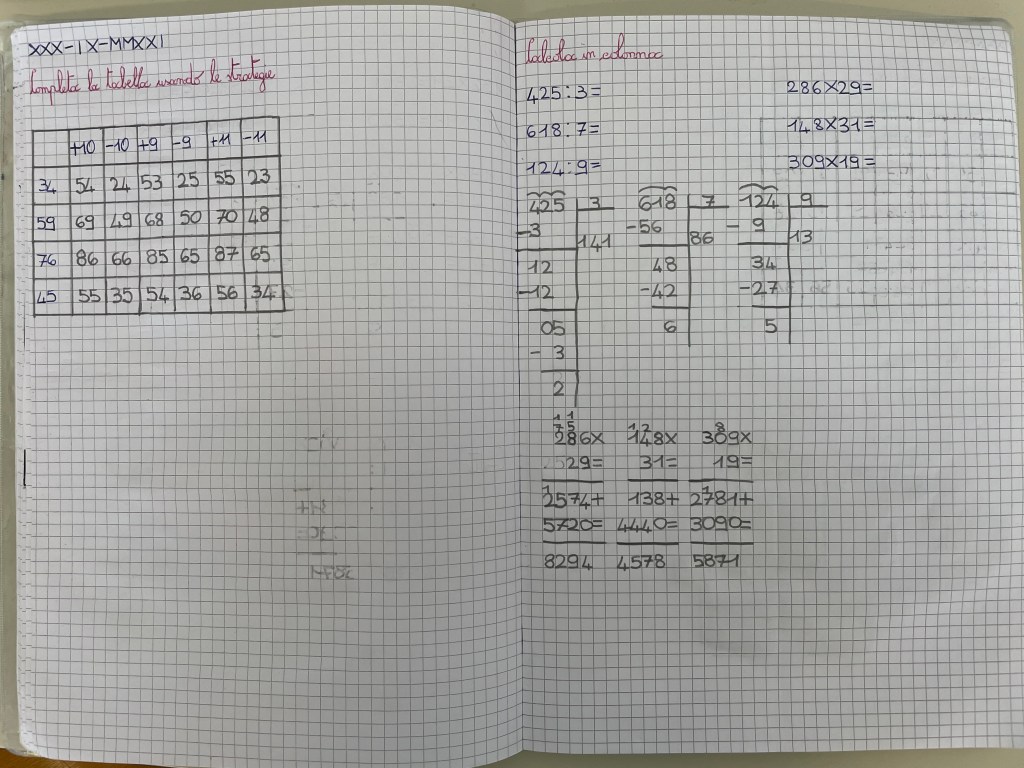 XXX-IX-MMXXI
Completa la tabella usando le strategie
+10 -10 +9 -9 +11 -11
34 54 24 53 25 55 23
59 69 49 68 50 70 48
76 86 66 85 65 87 65
45 55 35 54 36 56 34
Calcola in colonna
425:3= 286×29=
618:7= 148×31=
124:9= 309×19=
425 3 618 7 124 9
-3 141 -56 86 -9 13
12 48 34
-12 -42 -27
05 6 5
-3
2
1 1
7 5 1 2 8
286× 148× 309×
29= 31= 19=
1 1
2574+ 138+ 2781+
5720= 4440= 3090=
8294 4578 5871